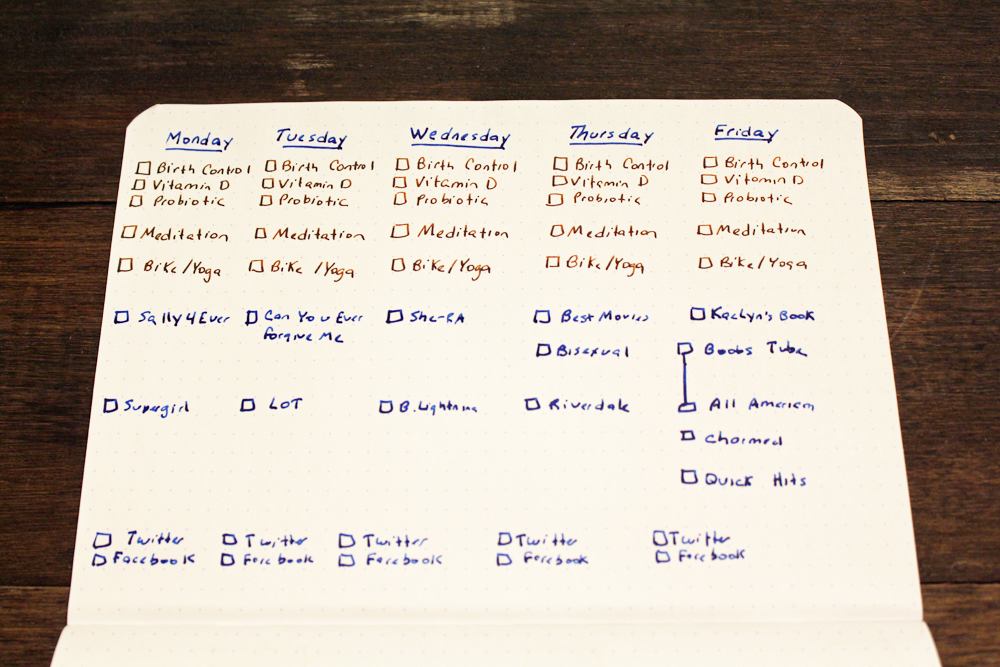 Monday Tuesday Wednesday Thursday Friday
Birth Control Birth Control Birth Control Birth Control Birth Control
Vitamin D Vitamin D Vitamin D Vitamin D Vitamin D
Probiotic Probiotic Probiotic Probiotic Probiotic
Meditation Meditation Meditation Meditation Meditation
Bike/Yoga Bike/Yoga Bike/Yoga Bike/Yoga Bike/Yoga
Sally4Ever Can You Ever She-RA Best Movies Kaelyn's Book
Forgive Me Bisexual Boobs Tube
Supergirl LOT B.Lightning Riverdale All American
Charmed
Quick Hits
Twitter Twitter Twitter Twitter Twitter
Facebook Facebook Facebook Facebook Facebook